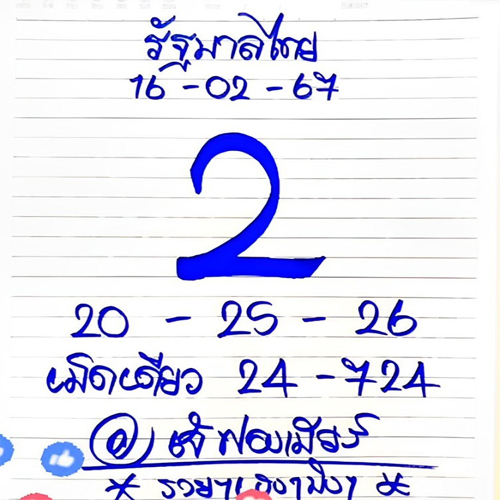 รัฐบาลไทย
16 - 02 - 67
2
20 - 25 - 26
เม็ดเดียว 24 - 724
เจ๊ฟองเบียร์
* รวยๆเฮงๆปังๆ *